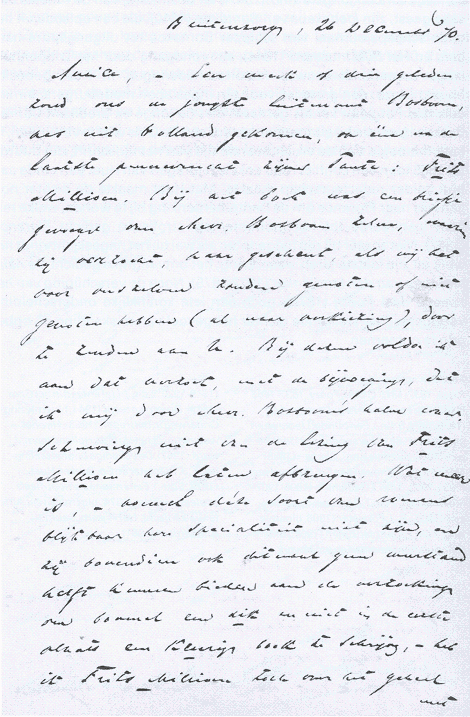 Buitenzorg, 26 December 70.
Amice, – Een week of drie geleden
zond ons de jongste luitenant Bosboom,
pas uit Holland gekomen, een der
laatste pennevrucht zijner Tante: Frits
Millioen. Bij het boek was een briefje
gevoegd van Mevr. Bosboom zelve, waarin
zij verzocht, haar geschenk, als wij het
voor onszelven zouden genoten of niet
genoten hebben (al naar verkiezing), door
te zenden aan U. Bij dezen voldoe ik
aan dat verzoek, met de bijvoeging, dat
ik mij door Mevr. Bosboom's halve waar-
schuwing niet van de lezing van Frits
Millioen heb laten afbrengen. Wat meer
is, – hoewel deze soort van romans
blijkbaar hare specialiteit niet zijn, en
zij bovendien ook ditmaal geen weerstand
heeft kunnen bieden aan de verzoeking
om hoewel een dik en niet in de eerste
plaats een kleurig boek te schrijven, – heb
ik Frits Millioen toch over het geheel
met